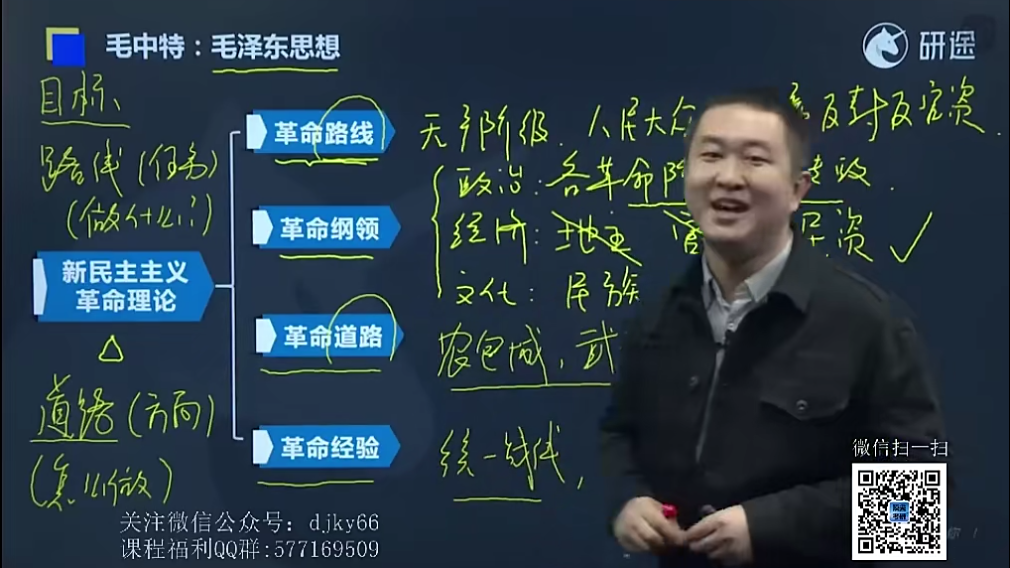 毛中特：毛泽东思想
研途
目标
路线（任务）
（做什么）
新民主主义
革命理论
道路（方向）
（怎么做）
革命路线
无产阶级．人民大众 反封反官资．
革命纲领
政治：各革命阶
经济：地主 官 民资 ✓
文化：民族
革命道路
农包城，武
革命经验
统一战线，
微信扫一扫
关注微信公众号：djky66
课程福利QQ群:577169509